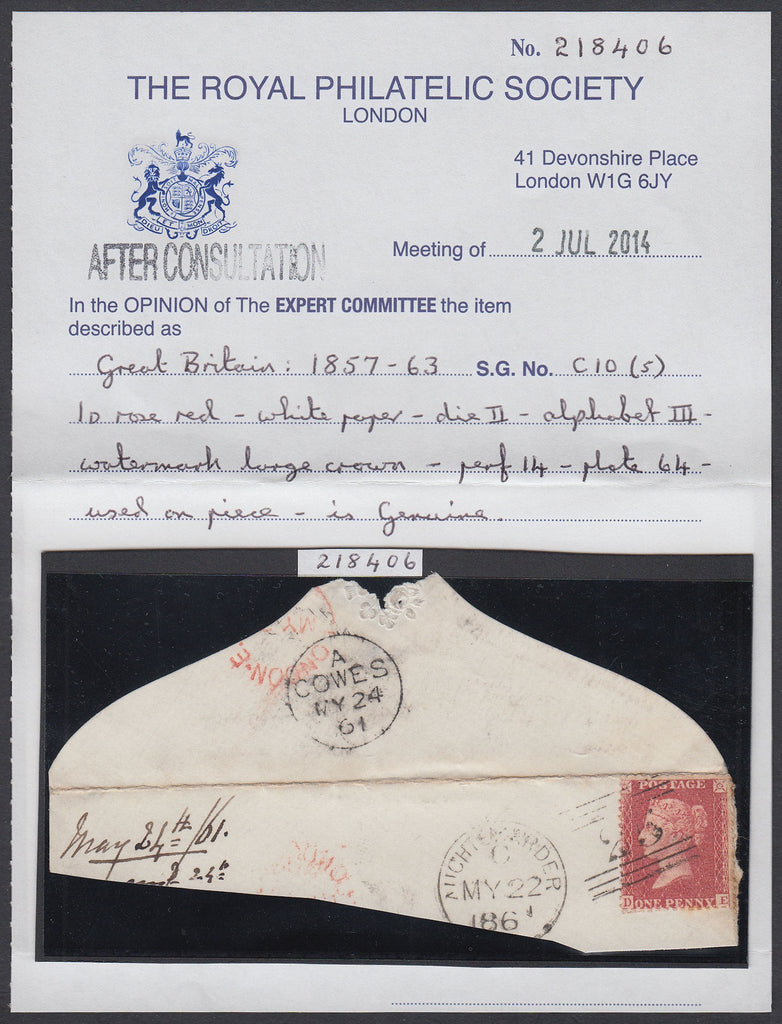 No. 218406
THE ROYAL PHILATELIC SOCIETY
LONDON
41 Devonshire Place
London W1G 6JY
DIEU ET MON DROIT
AFTER CONSULTATION
Meeting of 2 JUL 2014
In the OPINION of The EXPERT COMMITTEE the item
described as
Great Britain: 1857-63 S.G. No. C10 (5)
1D rose red - white paper - die II - alphabet III -
watermark large crown - perf 14 - plate 64 -
used on piece - is Genuine.
218406
LONDON-E
A
COWES
MY 24
61
POSTAGE
May 24th/61.
24th
AUCHTERARDER
C
MY 22
1861
D ONE PENNY E